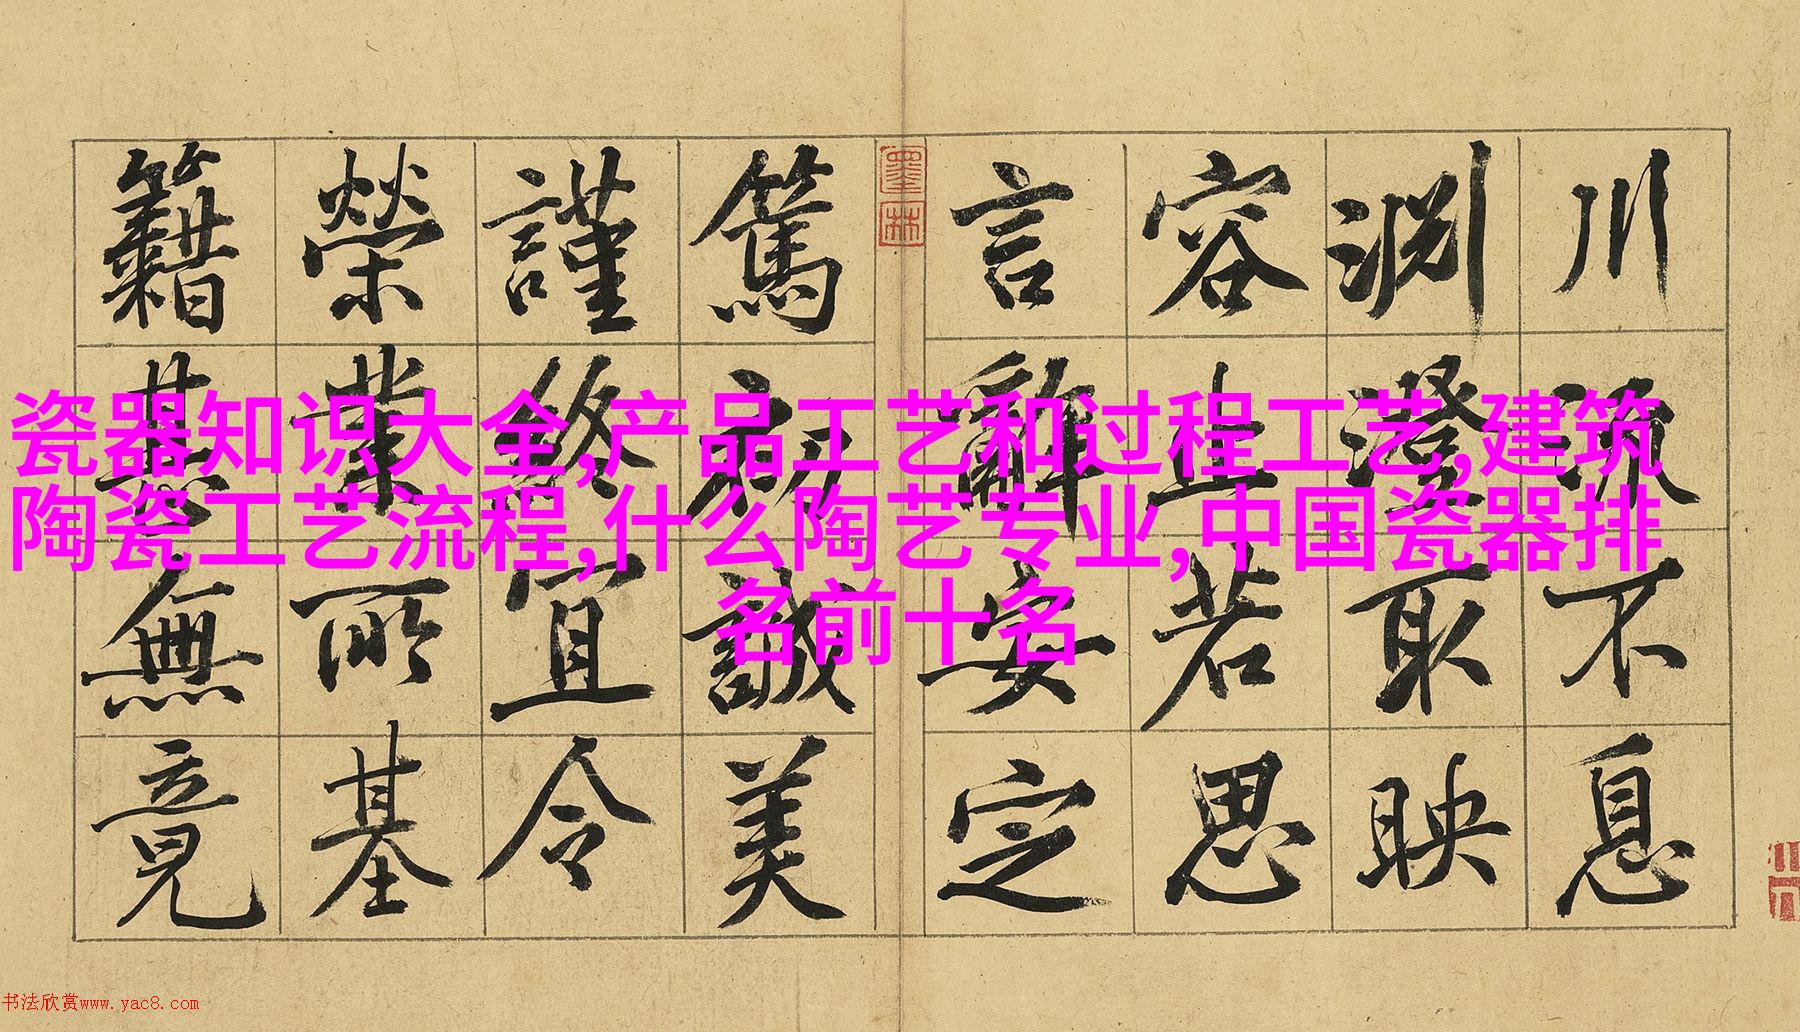 川流不息
淵澄取映
容止若思
言辭安定
墨林
篤初誠美
謹終宜令
榮業所基
籍甚無竟
瓷器知识大全,产品工艺和过程工艺,建筑
陶瓷工艺流程,什么陶艺专业,中国瓷器排
名前十名
书法欣赏www.yac8.com